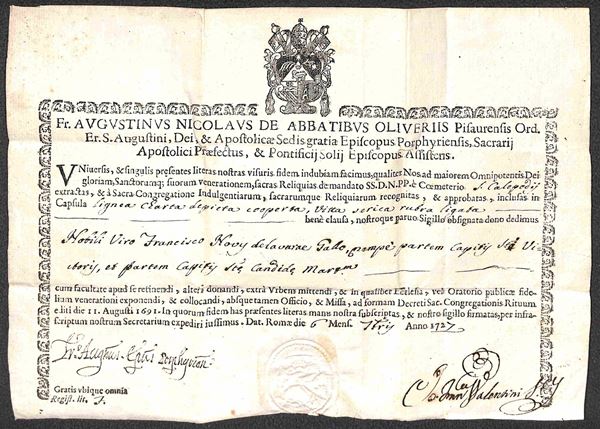 Fr. AVGVSTINVS NICOLAVS DE ABBATIBVS OLIVERIIS Pisaurensis Ord.
Er. S. Augustini, Dei, & Apostolicæ Sedis gratia Episcopus Porphyriensis, Sacrarij
Apostolici Præfectus, & Pontificij Solij Episcopus Assistens.
VNiversis, & singulis præsentes literas nostras visuris, fidem indubiam facimus, qualiter Nos ad maiorem Omnipotentis Dei
gloriam, Sanctorumq; suorum Venerationem, sacras Reliquias de mandato SS. D. N. PP. è Cœmeterio S. Calepodij
extractas, & à Sacra Congregatione Indulgentiarum, sacrarumque Reliquiarum recognitas, & approbatas, inclusas in
Capsula lignea charta depicta cooperta, vitta serica rubra ligata
benè clausa, nostroque paruo Sigillo obsignata dono dedimus
Nobili Viro Francisco partem Capitis Stī Vic
toris, et partem Stæ Candidæ
cum facultate apud se retinendi, alteri donandi, extrà Vrbem mittendi, & in qualibet Ecclesia, vel Oratorio publicæ fide
lium venerationi exponendi, & collocandi, absque tamen Officio, & Missa, ad formam Decreti Sac. Congregationis Rituum
editi die 11. Augusti 1691. In quorum fidem has præsentes literas manu nostra subscriptas, & nostro sigillo firmatas, per infra-
scriptum nostrum Secretarium expediri iussimus. Dat. Romæ die 6 Mens. 7bris Anno 1727
Fr. Augnus Epus Porphyrien:
Valentini
Gratis vbique omnia
Regist. lit.